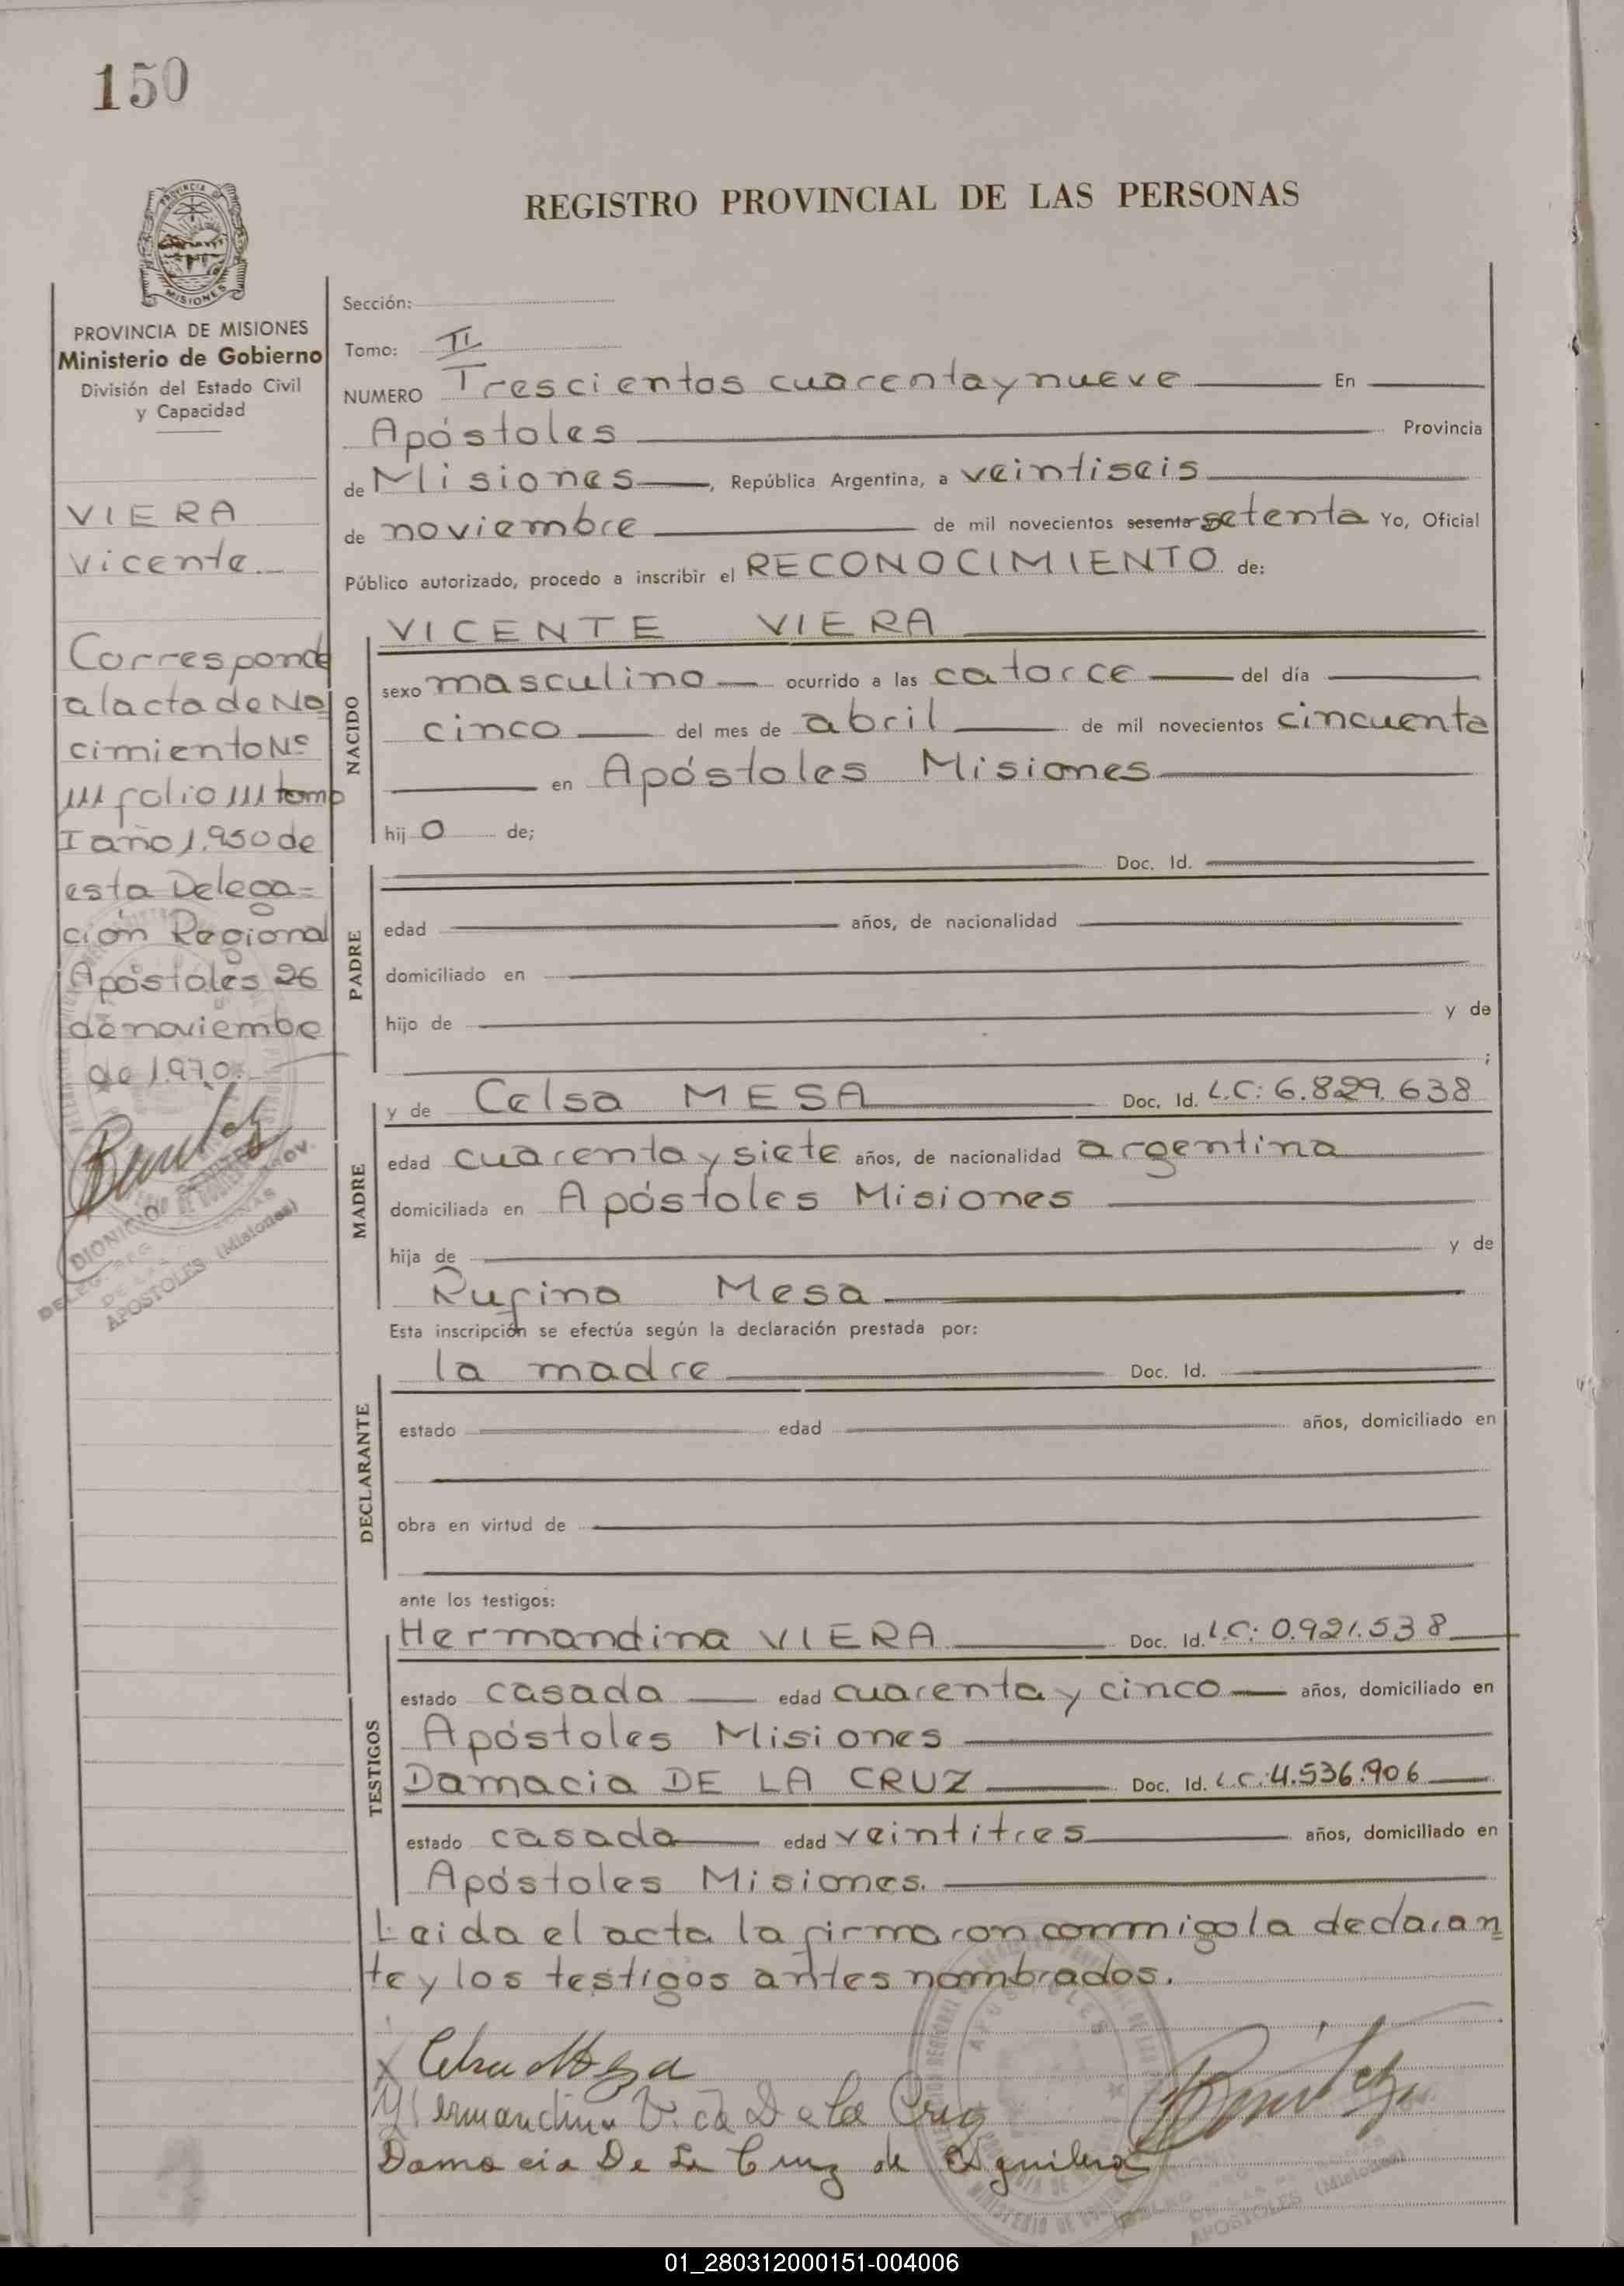 150
REGISTRO PROVINCIAL DE LAS PERSONAS
PROVINCIA
MISIONES
PROVINCIA DE MISIONES
Ministerio de Gobierno
División del Estado Civil
y Capacidad
VIERA
Vicente
Corresponde
al acta de Na
cimiento Nº
111 folio 111 tomo
I año 1.950 de
esta Delega=
ción Regional
Apóstoles 26
de noviembe
de 1.970.
DIONICIO BENITEZ
APOSTOLES (Misiones)
Sección:
Tomo: II
NUMERO Trescientos cuarenta y nueve En
Apóstoles Provincia
de Misiones, República Argentina, a veintiseis
de noviembre de mil novecientos sesenta setenta Yo, Oficial
Público autorizado, procedo a inscribir el RECONOCIMIENTO de:
NACIDO
VICENTE VIERA
sexo masculino ocurrido a las catorce del día
cinco del mes de abril de mil novecientos cincuenta
en Apóstoles Misiones
hij o de;
PADRE
Doc. Id.
edad años, de nacionalidad
domiciliado en
hijo de y de
;
MADRE
y de Celsa MESA Doc. Id. L.C: 6.829.638
edad cuarenta y siete años, de nacionalidad argentina
domiciliada en Apóstoles Misiones
hija de y de
Rufina Mesa
Esta inscripción se efectúa según la declaración prestada por:
DECLARANTE
la madre Doc. Id.
estado edad años, domiciliado en
obra en virtud de
ante los testigos:
TESTIGOS
Hermandina VIERA Doc. Id. L.C: 0.921.538
estado casada edad cuarenta y cinco años, domiciliado en
Apóstoles Misiones
Damacia DE LA CRUZ Doc. Id. L.C: 4.536.906
estado casada edad veintitres años, domiciliado en
Apóstoles Misiones.
Leida el acta la firmaron conmigo la declaran
te y los testigos antes nombrados.
Celsa Mesa
Hermandina De la Cruz
Damacia De La Cruz de Aguilera
Benitez
APOSTOLES (Misiones)
01_280312000151-004006